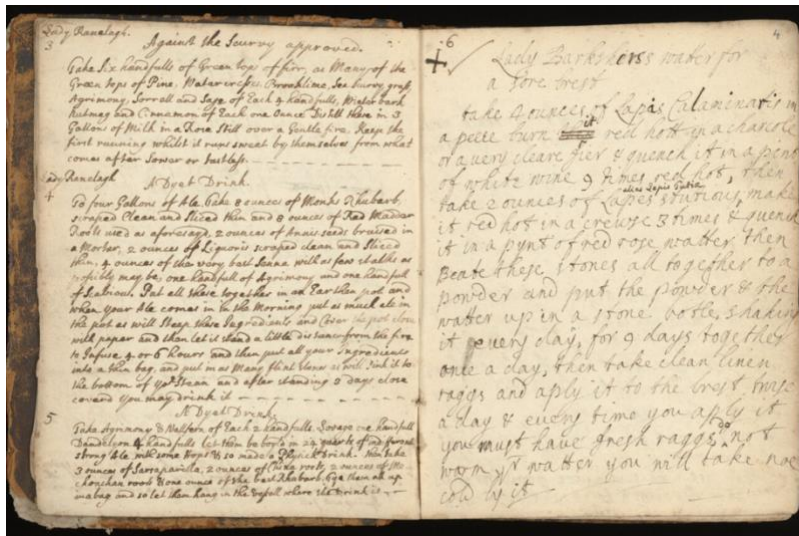 Lady Ranelagh.
3
Against the Scurvy approved.
Take Six handfulls of Green tops of firr, as Many of the
Green tops of Pine, Watercress, Brooklime, Sea Scurvy grass,
Agrimony, Sorrell and Sage of Each 4 handfulls, Winter bark
Nutmeg and Cinnamon of Each one Ounce Distill these in 3
Gallons of Milk in a Rose Still over a Gentle fire. Keep the
first running whilst it runs sweet by themselves from what
comes after Sower or Tastless.
ady Ranelagh
4
A Dyet Drink.
To four Gallons of Ale take 8 ounces of Monks Rhubarb,
scraped Clean and Sliced thin and 8 ounces of Red Madder
Roots used as aforesayd, 2 ounces of Annis seeds bruised in
a Morter, 2 ounces of Liquoris scraped clean and Sliced
thin, 4 ounces of the very best Senna with as few stalks as
possibly may be, one handfull of Agrimony and one handfull
of Scabious. Put all these together in an Earthen pot and
when your Ale comes in in the Morning put as much ale in
the pot as will Steep these Ingredients and Cover the pot close
with paper and then let it stand a little distance from the fire
to Infuse 4 or 6 hours and then put all your ingredients
into a thin bag, and put in as Many flint stones as will sink it to
the bottom of yor Stean and after standing 8 days close
covered you may drink it
5
A Dyet Drink
Take Agrimony & of Each 2 handfulls, one handfull
Dandelyon 4 handfulls let them be boyld in 24 quarts of
strong Ale with some Hops & so made a Drink. then take
3 ounces of Sarsaparilla, 2 ounces of China roots, 2 ounces of Me-
chouchan roots & one ounce of the best Rhubarb tye them all up
in a bag and so let them hang in the vessell where the Drink is
6
4
Lady Barkshers watter for
a sore brest
take 4 ounces of Lapis Calaminaris in
a peece burn it red hott in a charcole
or a very cleare fier & quench it in a pint
of white wine 9 times red hot, then
alias Lapis Tutia
take 2 ounces of Lapes make
it red hot in a crewse 3 times & quench
it in a pynt of red rose watter then
Beate these stones all together to a
powder and put the powder & the
watter up in a stone botle, shaking
it every day, for 9 days together
once a day, then take clean linen
raggs and aply it to the brest, twise
a day & every time you aply it
you must have fresh raggs, do not
warm yr watter you will take noe
cold by it